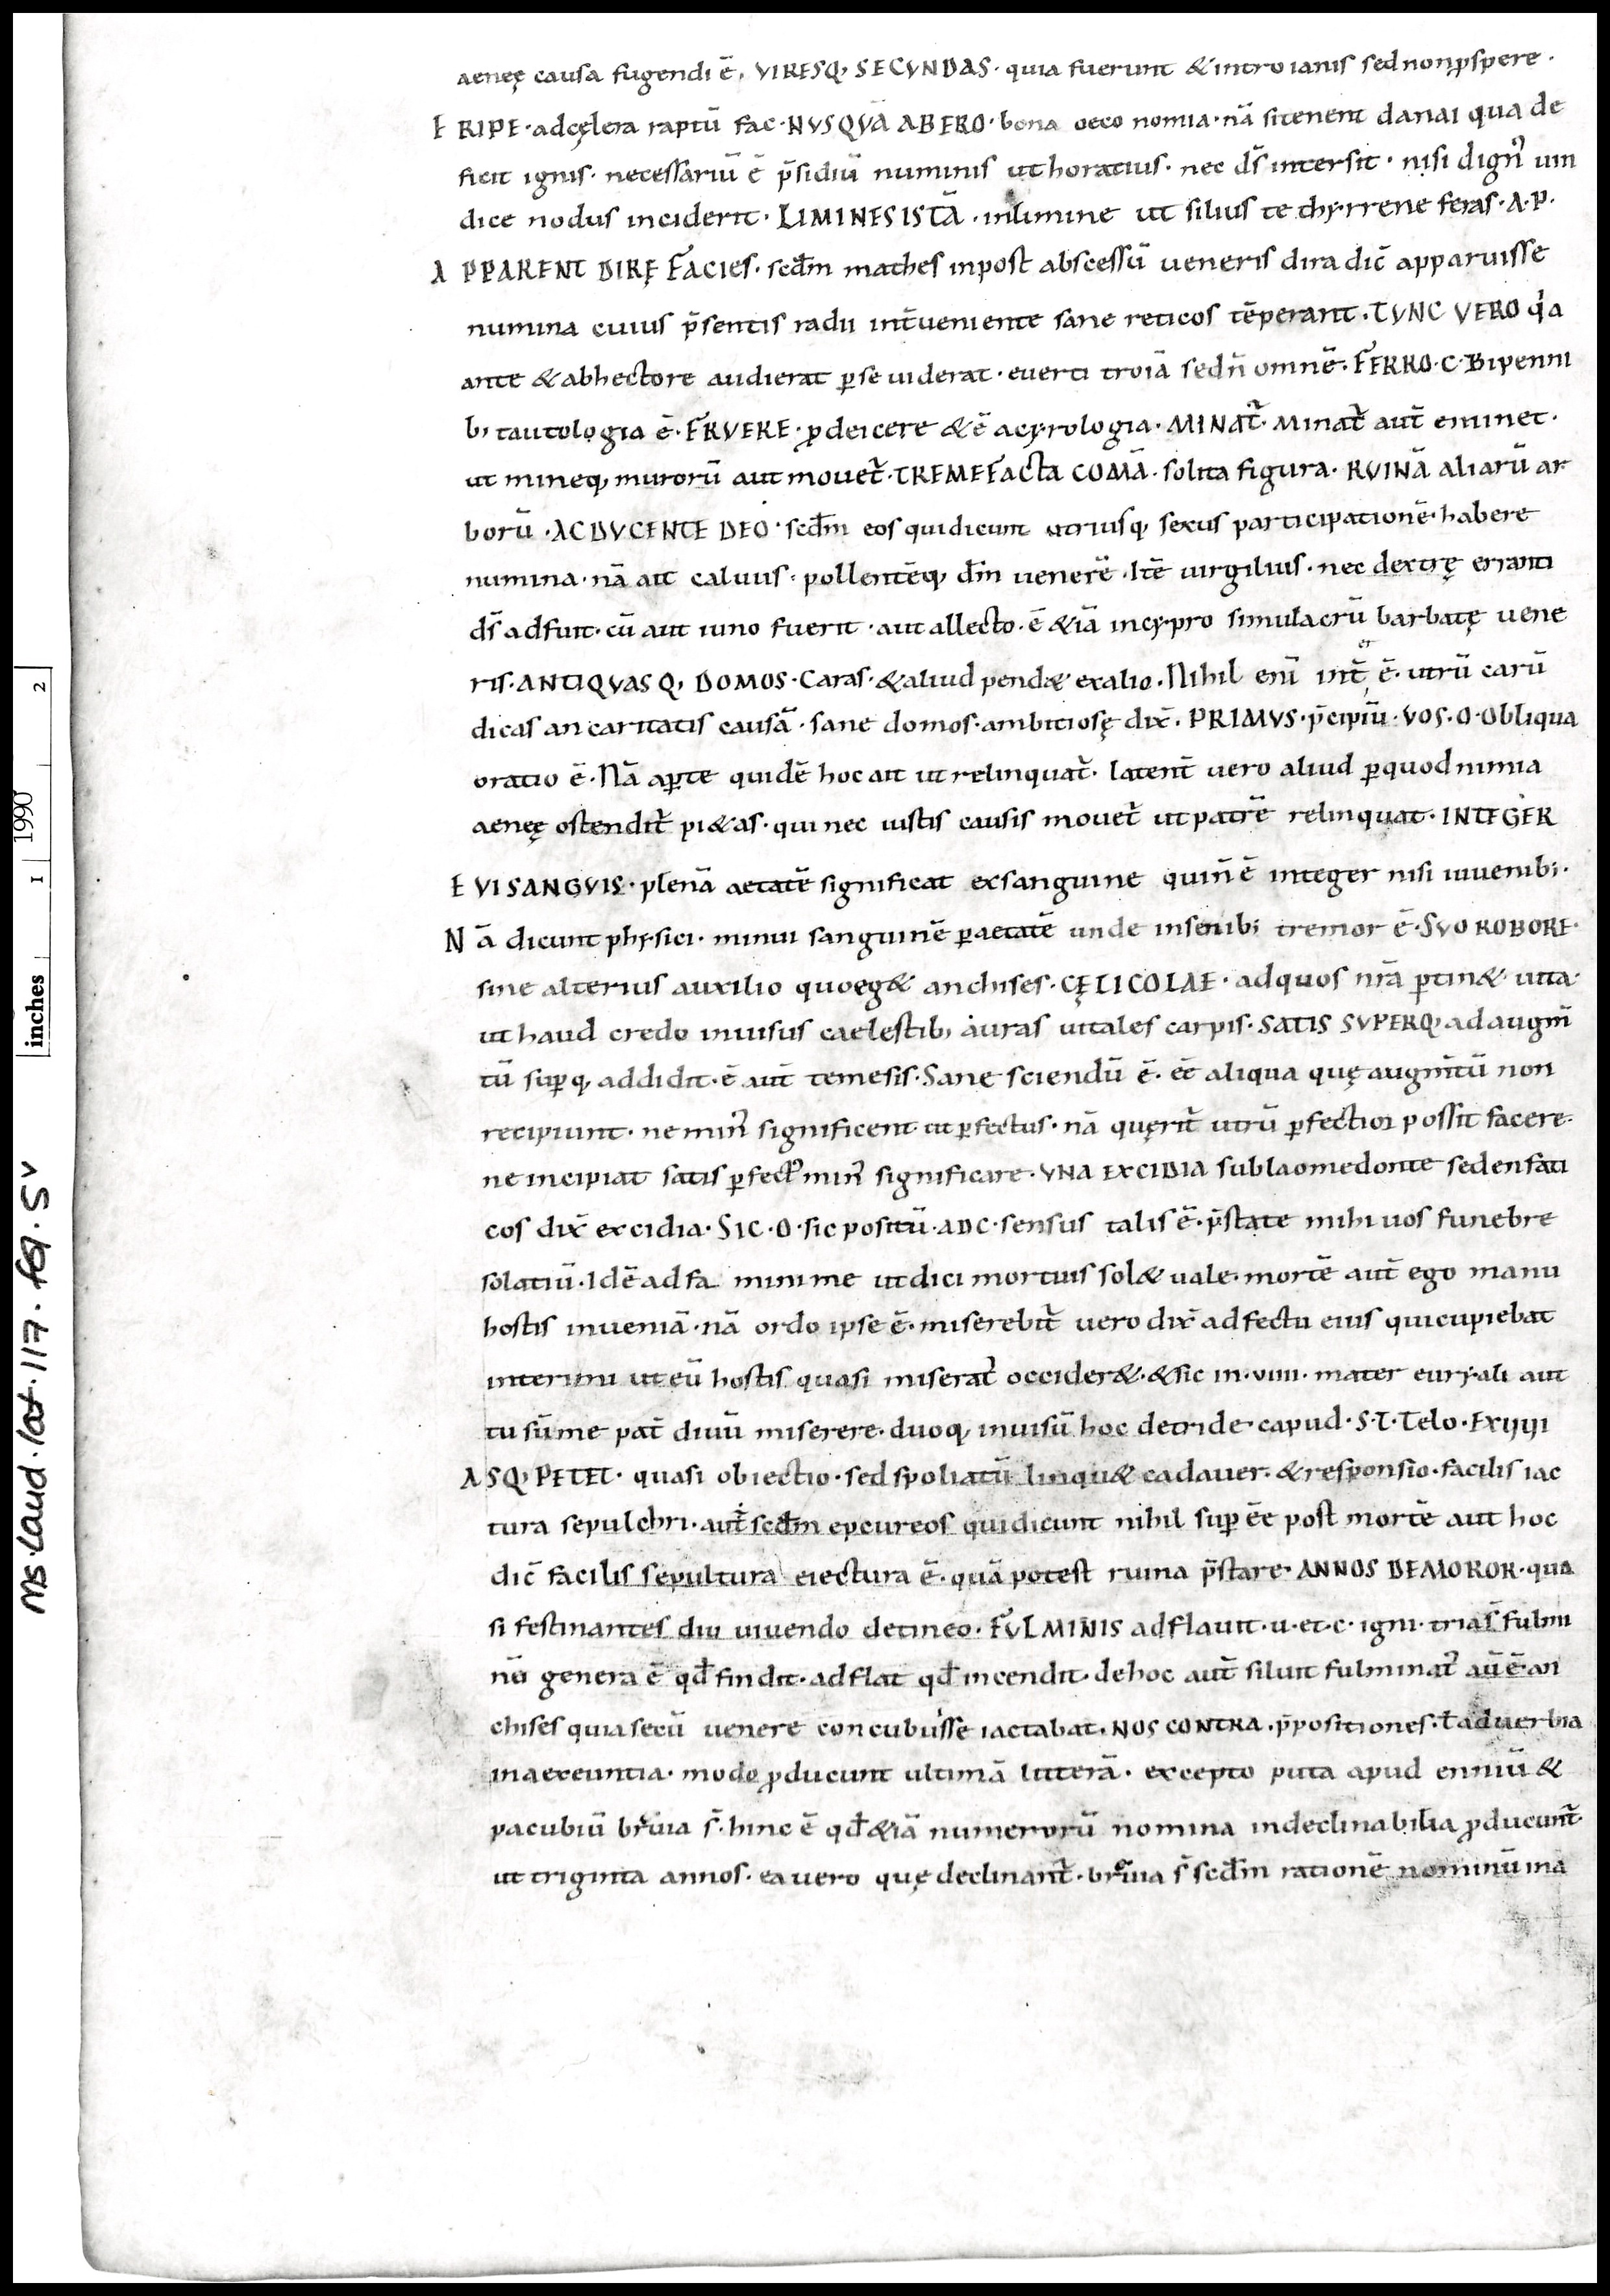 aeneę causa fugendi ē. VIRESQ; SECVNDAS· quia fuerunt & introianis sed nonꝓspere·
ERIPE· adcęlera raptū fac· NVSQVĀ ABERO· bona oeconomia· nā si tenent danai qua de
ficit ignis· necessariū ē p̄sidiū numinis ut horatius· nec ds̄ intersit· nisi dign᾽ uin
dice nodus inciderit· LIMINE SISTĀ· inlimine ut silius te thyrrene feras· A·P·
APPARENT DIRĘ FACIES· scdm̄ mathes inpost abscessū ueneris dira dic̄ apparuisse
numina cuius p̄sentis radii int̄ueniente sane reticos tēperant· TVNC VERO q'a
ante & abhectore audierat ꝑse uiderat· euerti troiā sedn̄ omnē· FERRO·C·Bipenni
b; tautologia ē· ERVERE· ꝓ deicere & ē acyrologia· MINAT̄· Minat̄ aut̄ eminet·
ut mineq; murorū aut mouet̄· TREMEFACTA COMĀ· solita figura· RVINĀ aliarū ar
borū· AC DVCENTE DEO· scdm̄ eos qui dicunt utriusq; sexus participationē· habere
numina· nā ait caluus· pollentēq; dm̄ uenerē· Itē uirgilius· nec dextrę erranti
ds̄ adfuit· cū aut iuno fuerit· aut allecto· ē & iā incypro simulacrū barbatę uene
ris· ANTIQVASQ; DOMOS· Caras· & aliud pend& exalio· Nihil enī int̄ ē· utrū carū
dicas an caritatis causā· sane domos· ambitiosę dix̄· PRIMVS· p̄cipiū· VOS·O· Obliqua
oratio ē· Nā aꝑte quidē hoc ait ut relinquat̄· latent̄ uero aliud ꝑquod nimia
aeneę ostendit̄ pi&as· qui nec iustis causis mouet̄ ut patrē relinquat· INTEGER
EVI SANGVIS· plenā aetatē significat exsanguine quin̄ ē integer nisi iuuenibi·
Nā dicunt physici· minui sanguinē ꝑaetatē unde insenibi tremor ē· SVO ROBORE·
sine alterius auxilio quo eg& anchises· CĘLICOLAE· adquos nr̄a ꝑtin& uita·
ut haud credo inuisus caelestib; auras uitales carpis· SATIS SVPERQ; ad augm̄
tū suꝑq; addidit· ē aut̄ temesis· Sane sciendū ē· eē aliqua quę augm̄tū non
recipiunt· ne min᾽ significent ut ꝑfectus· nā quęrit̄ utrū ꝑfectior possit facere·
ne incipiat satis ꝑfect᾽ min᾽ significare· VNA EXCIDIA sub laomedonte sed enfati
cos dix̄ excidia· SIC·O· sic positū· ADC· sensus talis ē· p̄state mihi uos funebre
solatiū· Idē ad fa minime ut dici mortuis sol& uale· mortē aut̄ ego manu
hostis inueniā· nā ordo ipse ē· miserebit̄ uero dix̄ ad fectu eius qui cupiebat
interimi ut eū hostis quasi miserat̄ occider&· & sic in·viiii· mater euryali aut
tu sūme pat̄ diuū miserere· duoq; inuisū hoc detride capud· S·T· Telo· EXIIIII
ASQ; PETET· quasi obiectio· sed spoliatū linqu& cadauer· & responsio· facilis iac
tura sepulchri· aut̄ scdm̄ epcureos qui dicunt nihil suꝑ eē post mortē aut hoc
dic̄ facilis sepultura eiectura ē· quā potest ruina p̄stare· ANNOS DEMOROR· qua
si festinantes diu uiuendo detineo· FVLMINIS adflauit·u·et·c· igni· trias̄ fulmi
nū genera ē qd̄ findit· adflat qd̄ incendit· dehoc aut̄ siluit fulminat̄ aū ē· an
chises quia secū uenere concubuisse iactabat· NOS CONTRA· p̄positiones· ł aduerbia
ina exeuntia· modo ꝓducunt ultimā litterā· excepto puta apud enniū &
pacubiū br̄uia s̄· hinc ē qd̄ & iā numerorū nomina indeclinabilia ꝓducunt̄·
ut triginta annos· ea uero quę declinant̄· br̄uia s̄ scdm̄ rationē nominū ina
inches 1 2
1990
MS. Laud. lat. 117. fol. 5v